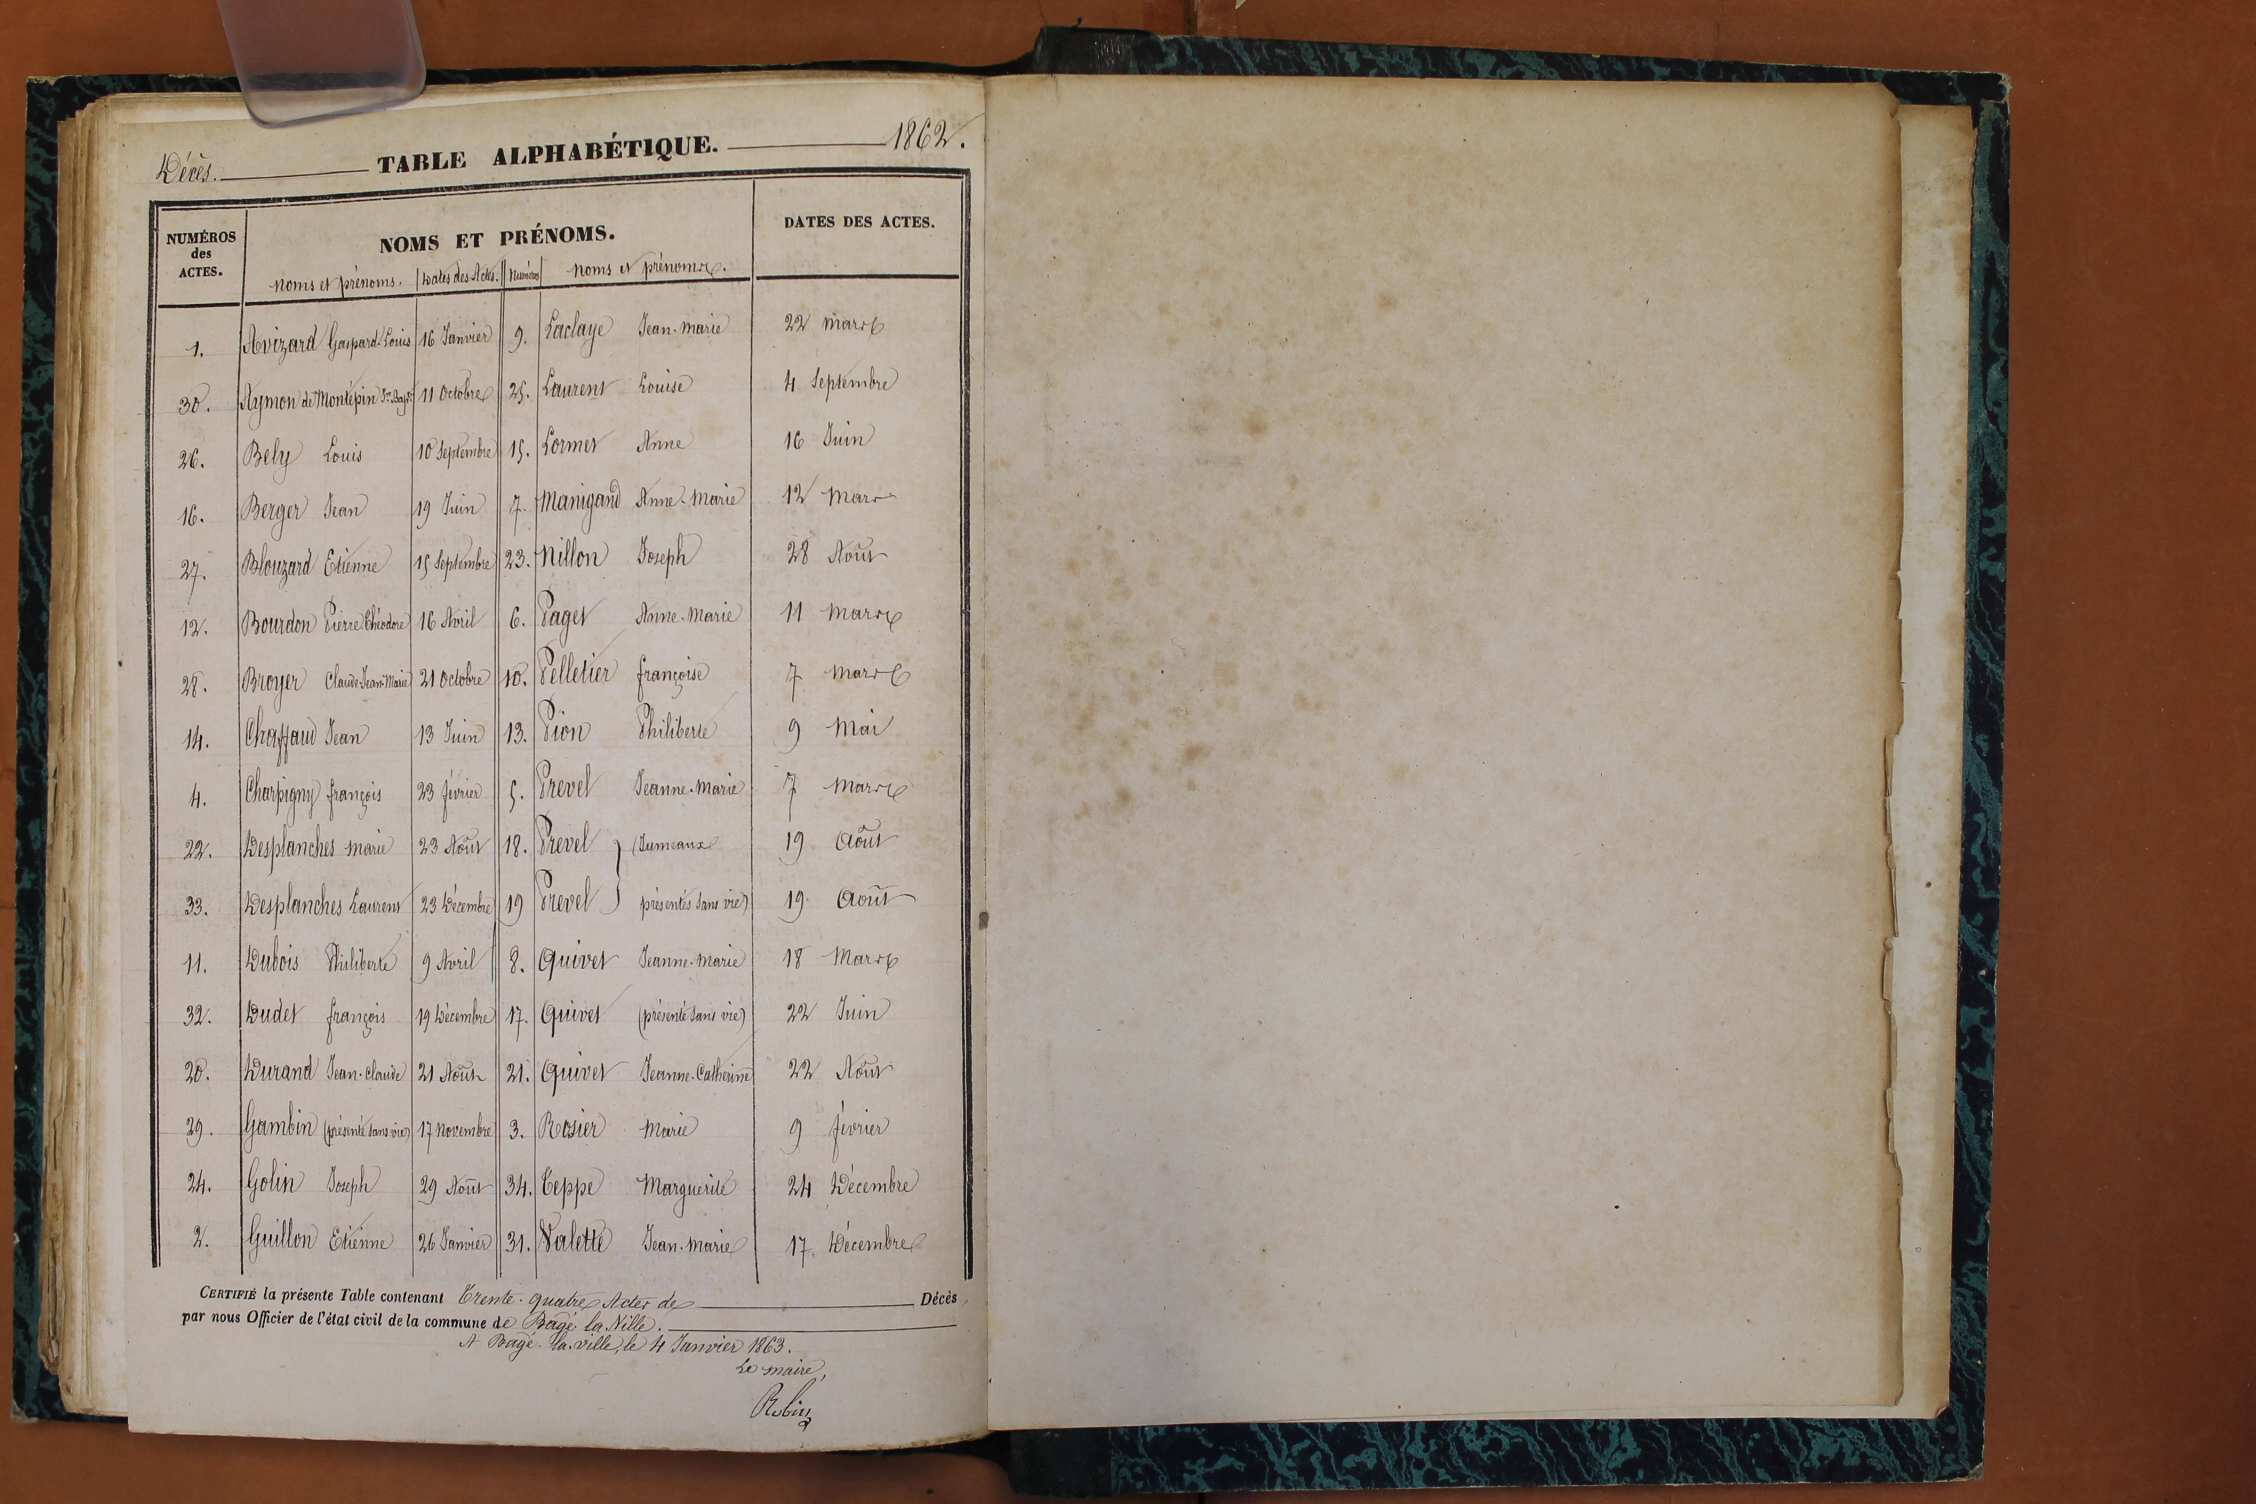 Décès. TABLE ALPHABÉTIQUE. 1862.
NUMÉROS des ACTES. NOMS ET PRÉNOMS. DATES DES ACTES.
Noms et prénoms. Dates des Actes. Numéros Noms et prénoms.
1. Avizard Gaspard-Louis 16 Janvier 9. Laclaye Jean-Marie 22 Mars
30. Aymon de Montépin Jn Bapte 11 Octobre 25. Laurent Louise 4 Septembre
26. Bely Louis 10 Septembre 15. Lormet Anne 16 Juin
16. Berger Jean 19 Juin 7. Manigand Anne-Marie 12 Mars
27. Blouzard Etienne 15 Septembre 23. Nillon Joseph 28 Août
12. Bourdon Pierre Théodore 16 Avril 6. Paget Anne-Marie 11 Mars
28. Broyer Claude-Jean-Marie 21 Octobre 10. Pelletier françoise 7 Mars
14. Chaffaud Jean 13 Juin 13. Pion Philiberte 9 Mai
4. Charpigny françois 23 février 5. Prevel Jeanne-Marie 7 Mars
22. Desplanches Marie 23 Août 18. Prevel } (Jumeaux 19 Août
33. Desplanches Laurent 23 Décembre 19 Prevel } présentés sans vie) 19 Août
11. Dubois Philiberte 9 Avril 8. Quivet Jeanne-Marie 18 Mars
32. Dudet françois 19 Décembre 17. Quivet (présenté sans vie) 22 Juin
20. Durand Jean-Claude 21 Août 21. Quivet Jeanne-Catherine 22 Août
29. Gambin (présenté sans vie) 17 Novembre 3. Rosier Marie 9 février
24. Golin Joseph 29 Août 34. Teppe Marguerite 24 Décembre
2. Guillon Etienne 26 Janvier 31. Valette Jean-Marie 17. Décembre
CERTIFIÉ la présente Table contenant Trente-quatre Actes de Décès
par nous Officier de l'état civil de la commune de Bagé la Ville.
A Bagé-la-ville, le 4 Janvier 1863.
Le maire,
Robin